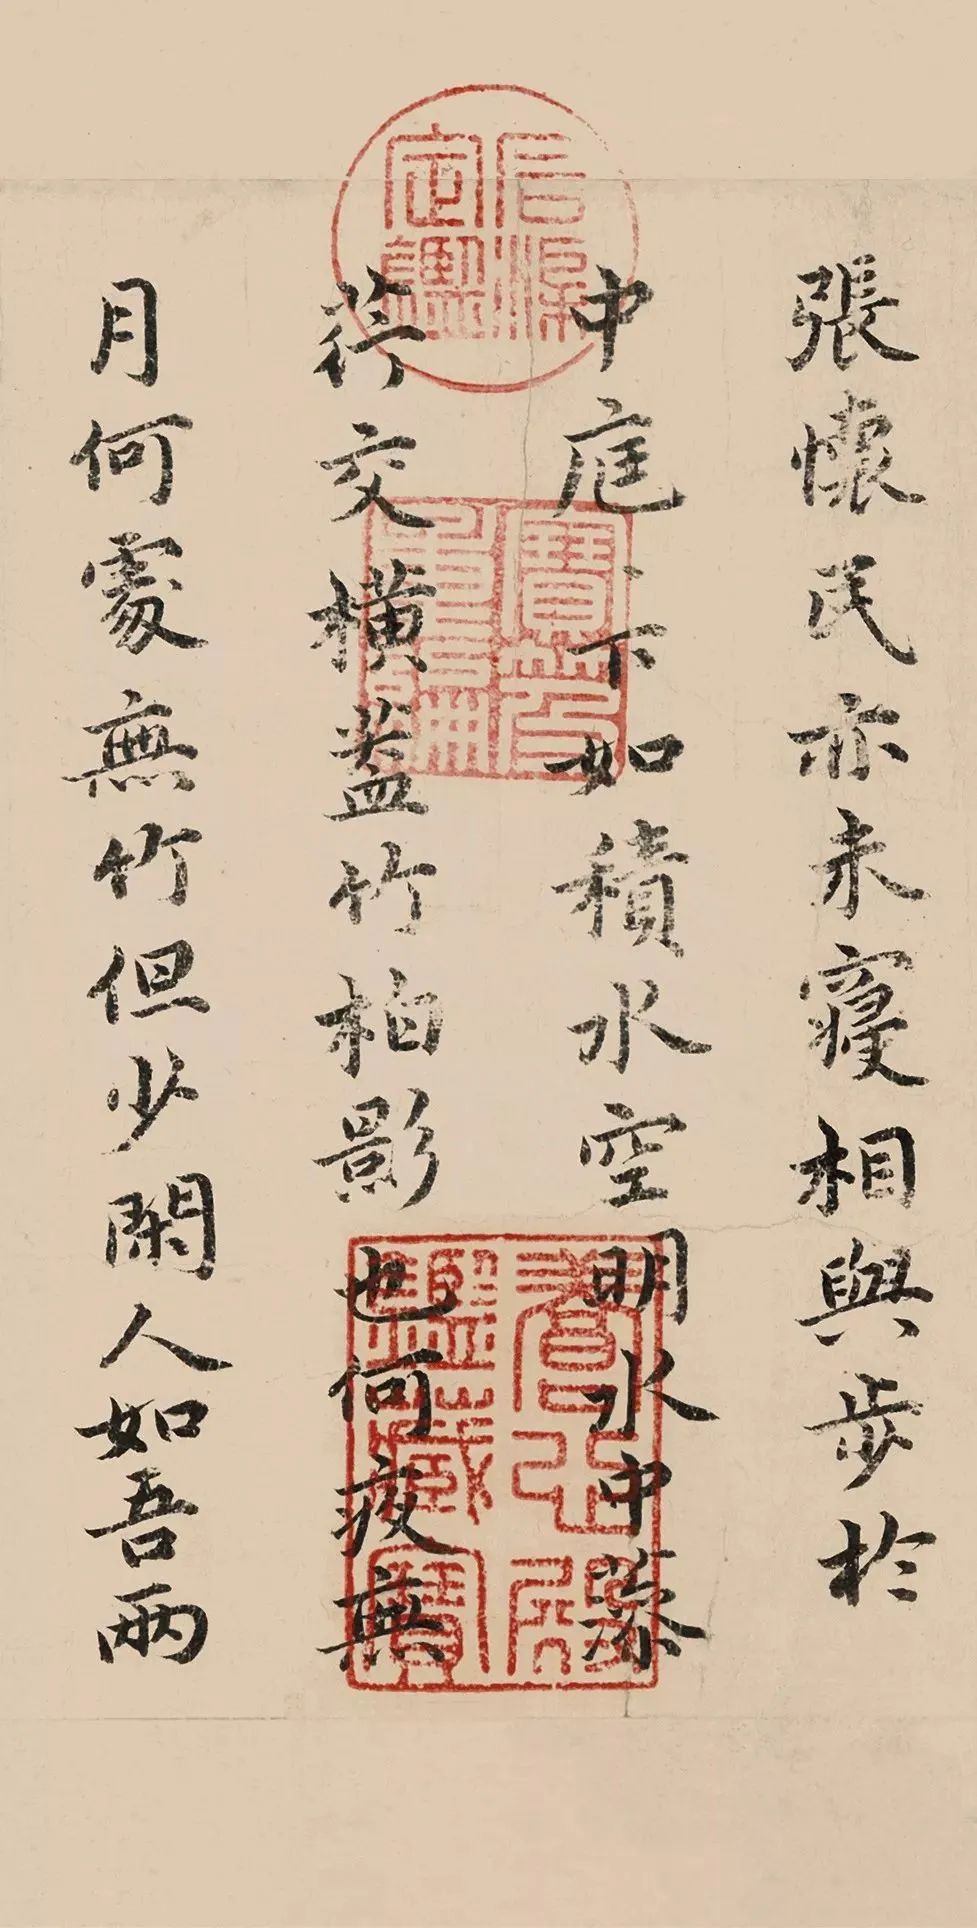 張懷民亦未寢相與步於
中庭、下如積水空明水中藻
荇交橫蓋竹柏影也何夜無
月何處無竹但少閑人如吾兩
石渠定鑑
寶笈重編
養心殿鑑藏寶